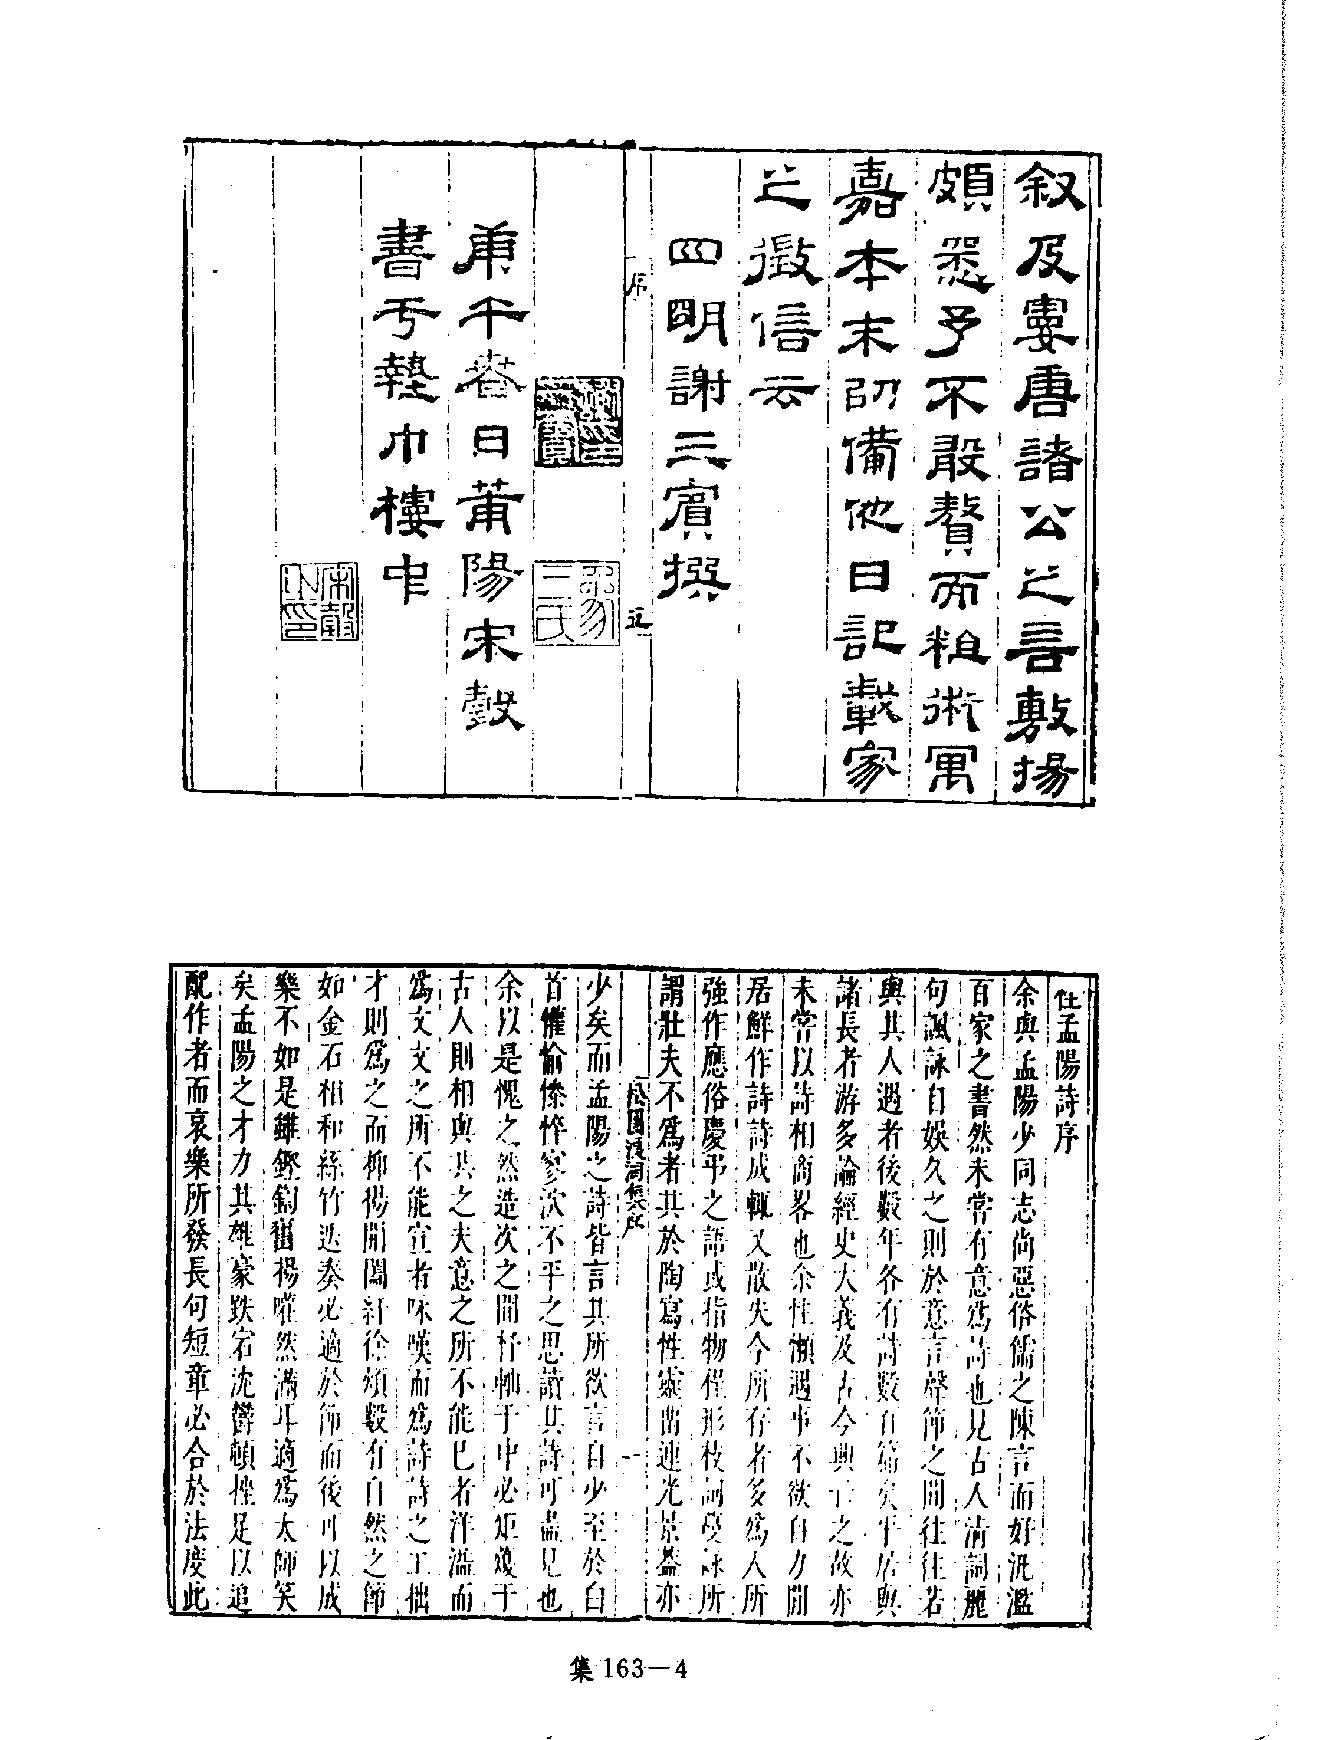 叙及婁唐諸公之言敷揚
頗悉予不敢贅而粗術寓
嘉本末㠯備他日記載家
之徵信云
四明謝三賓撰
序
五
庚午春日莆陽宋瑴
書于墊巾樓中
宋瑴之印
程孟陽詩序
余與孟陽少同志尚惡俗儒之陳言而好汎濫
百家之書然未嘗有意爲詩也見古人淸詞麗
句諷詠自娛久之則於意言聲節之間往往若
與其人遇者後數年各有詩數百篇矣平居與
諸長者游多論經史大義及古今興亡之故亦
未嘗以詩相商畧也余性懶遇事不欲自力閒
居鮮作詩詩成輒又散失今所存者多爲人所
強作應俗慶弔之語或指物程形枝詞蔓詠所
謂壯夫不爲者其於陶寫性靈留連光景葢亦
松圓浪淘集序
一
少矣而孟陽之詩皆言其所欲言自少至於白
首懽愉慘悴寥泬不平之思讀其詩可盡見也
余以是愧之然造次之間杼軸于中必矩矱于
古人則相與共之夫意之所不能已者洋溢而
爲文文之所不能宣者咏嘆而爲詩詩之工拙
才則爲之而抑揚開闔紆徐頓數有自然之節
如金石相和絲竹迭奏必適於節而後可以成
樂不如是雖鏗鍧舊楊嚾然滿耳適爲太師笑
矣孟陽之才力其雄豪跌宕沈鬱頓挫足以追
配作者而哀樂所發長句短章必合於法度此
集 163—4